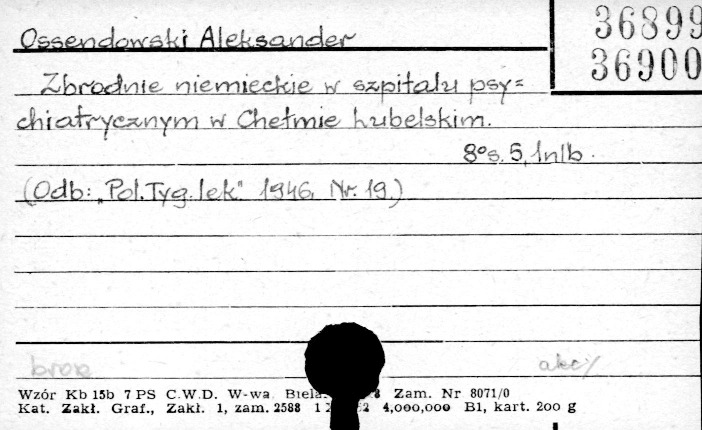 Ossendowski Aleksander
36899
36900
Zbrodnie niemieckie w szpitalu psy=
chiatrycznym w Chełmie Lubelskim.
8° s. 5, 1 nlb.
(Odb: "Pol. Tyg. lek" 1946, Nr. 19.)
akc
Wzór Kb 15b 7 PS C.W.D. W-wa Zam. Nr 8071/0
Kat. Zakł. Graf., Zakł. 1, zam. 2588 4,000,000 B1, kart. 200 g